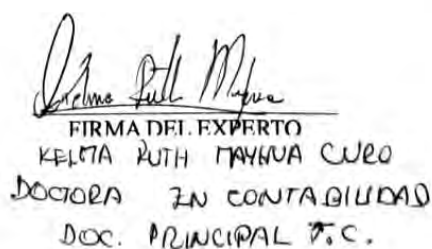 Kelma Ruth Mayhua
FIRMA DEL EXPERTO
KELMA RUTH MAYHUA CURO
DOCTORA EN CONTABILIDAD
DOC. PRINCIPAL T.C.